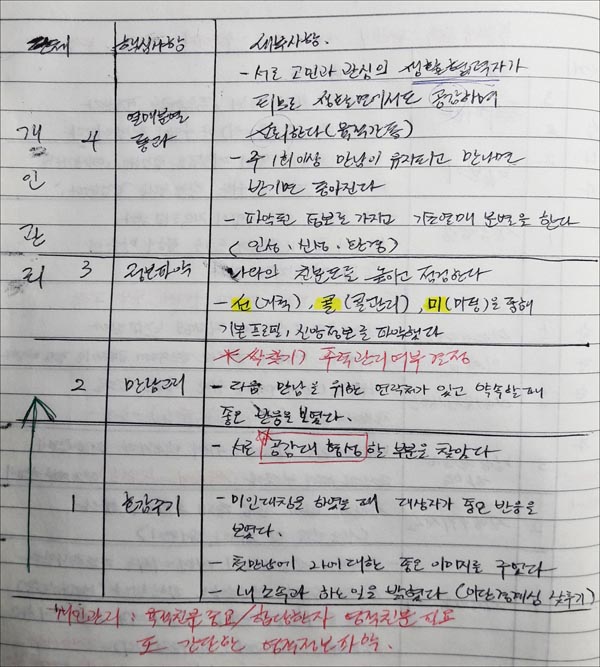 단계 핵심사항 세부사항.
- 서로 고민과 관심의 생활협력자가
되므로 생활면에서도 공감하며
신뢰한다 (육적가능)
개인관리
4 열매분별 통과
- 주 1회이상 만남이 유지되고 만나면
반기며 좋아진다
- 파악된 정보를 가지고 기초열매 분별을 한다
(인성, 신성, 환경)
3 정보파악 나와의 친분도를 높이고 점검한다
- 선(거룩), 콜(콜관리), 미(미팅)을 통해
기본프로필, 신앙정보를 파악했다
※ 싹찾기) 주목관리여부 결정
2 만남고리 - 다음 만남을 위한 연락처가 있고 약속할때
좋은 반응을 보였다.
- 서로 공감대 형성할 부분을 찾았다
1 호감주기 - 미인대칭을 하였을 때 대상자가 좋은 반응을
보였다.
- 첫만남에 나에 대한 좋은 이미지를 주었다
- 내 소속과 하는 일을 밝혔다 (이단경계심 낮추기)
개인관리 : 육적친분도고 / 합당한자 영적친분 필요
또 간단한 영적정보파악.